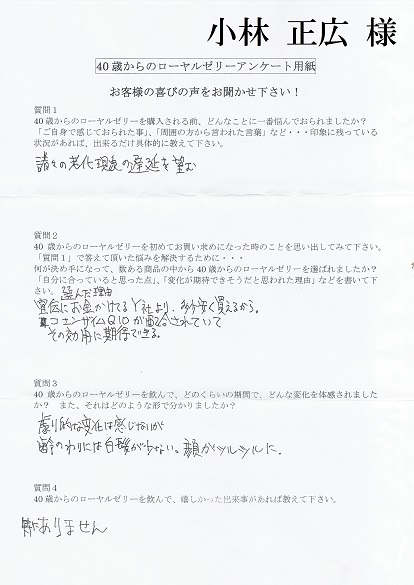 小林 正広 様
40歳からのローヤルゼリーアンケート用紙
お客様の喜びの声をお聞かせ下さい！
質問１
40歳からのローヤルゼリーを購入される前、どんなことに一番悩んでおられましたか？
「ご自身で感じておられた事」、「周囲の方から言われた言葉」など・・・印象に残っている
状況があれば、出来るだけ具体的に教えて下さい。
諸々の老化現象の遅延を望む
質問２
40歳からのローヤルゼリーを初めてお買い求めになった時のことを思い出してみて下さい。
「質問１」で答えて頂いた悩みを解決するために・・・
何が決め手になって、数ある商品の中から40歳からのローヤルゼリーを選ばれましたか？
「自分に合っていると思った点」、「変化が期待できそうだと思われた理由」などを書いて下
さい。選んだ理由
宣伝にお金かけてるY社より、多分安く買えるから。
コエンザイムQ10が配合されていて
その効用に期待できる。
質問３
40歳からのローヤルゼリーを飲んで、どのくらいの期間で、どんな変化を体感されました
か？ また、それはどのような形で分かりましたか？
劇的な変化は感じないが
齢のわりには白髪が少ない。顔がツルツルに。
質問４
40歳からのローヤルゼリーを飲んで、嬉しかった出来事があれば教えて下さい。
特にありません